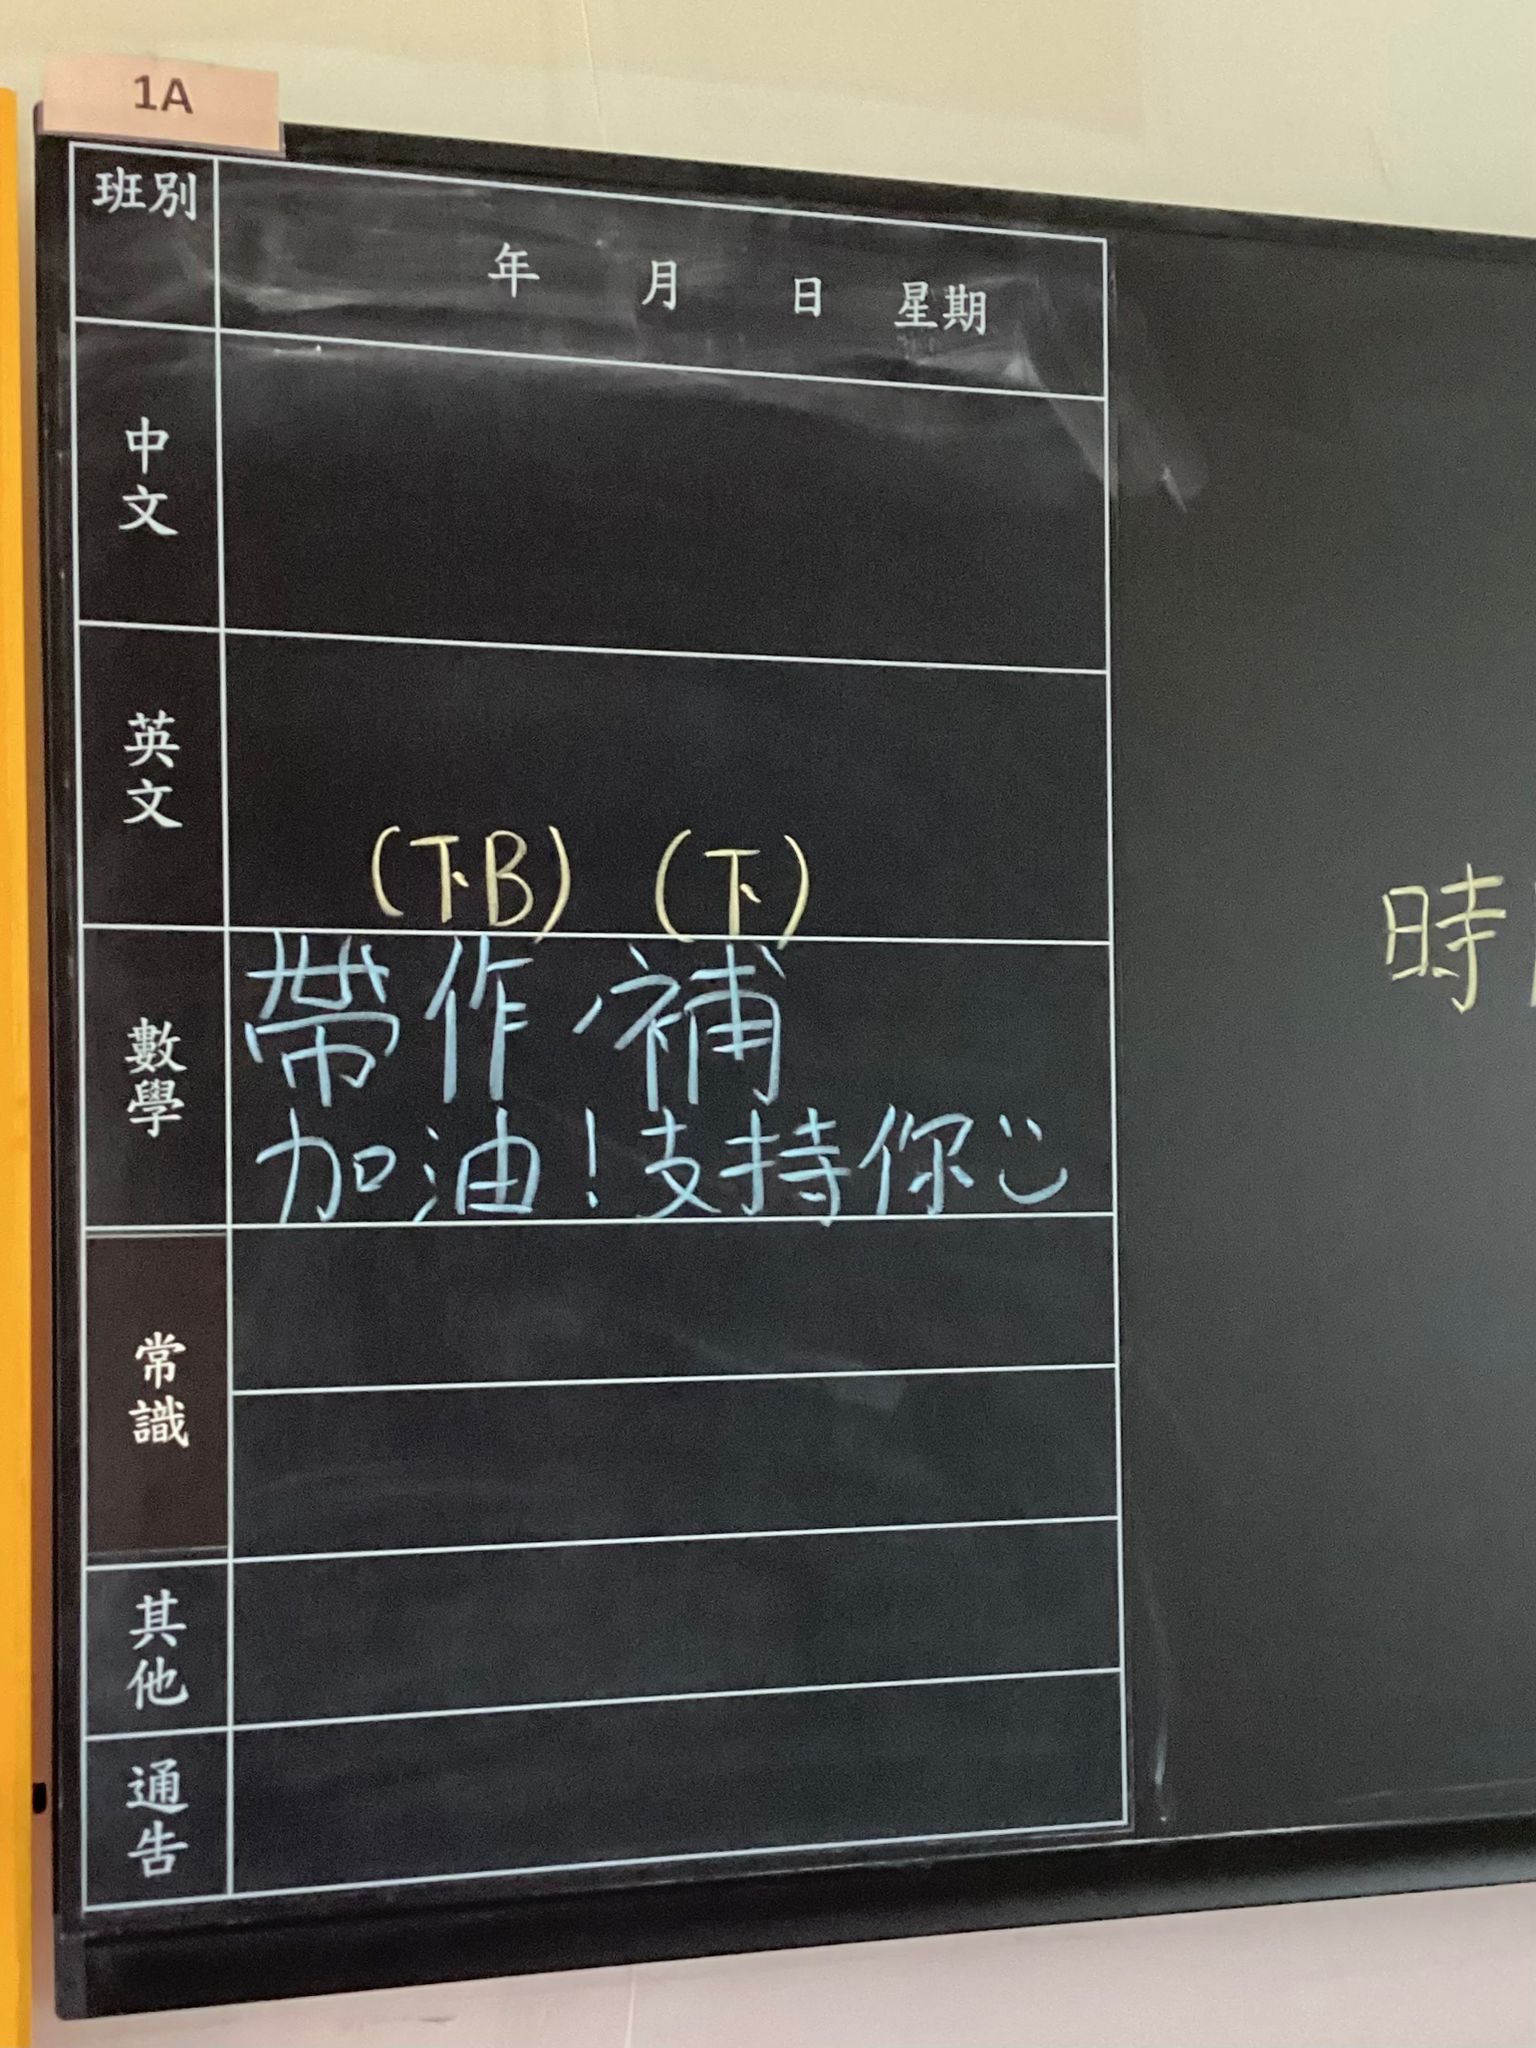 1A
班別
年 月 日 星期
中文
英文
(下B) (下)
數學
帶作、補
加油！支持你
常識
其他
通告
時